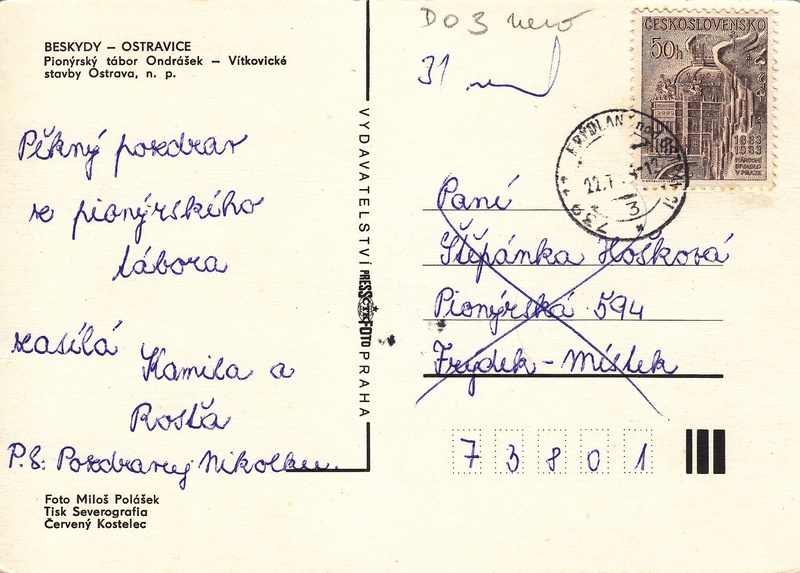 BESKYDY – OSTRAVICE
Pionýrský tábor Ondrášek – Vítkovické
stavby Ostrava, n. p.
Pěkný pozdrav
ze pionýrského
tábora
zasílá
Kamila a
Rosťa
P.S. Pozdravuj Nikolku.
Foto Miloš Polášek
Tisk Severografia
Červený Kostelec
VYDAVATELSTVÍ PRESSFOTO PRAHA
DO 3
31
ČESKOSLOVENSKO
50h
1883
1983
NÁRODNÍ
DIVADLO
V PRAZE
739 11
22.7.
3
Paní
Štěpánka Hošková
Pionýrská 594
Frýdek-Místek
73801